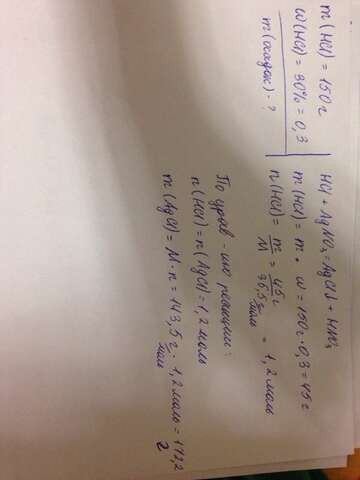 m(HCl) = 150г
ω(HCl) = 30% = 0,3
m(осадок) - ?
HCl + AgNO₃ = AgCl↓ + HNO₃
m(HCl) = m · ω = 150г · 0,3 = 45г
n(HCl) = m/M = 45г / 36,5 г/моль = 1,2 моль
По урав-ию реакции:
n(HCl) = n(AgCl) = 1,2 моль
m(AgCl) = M · n = 143,5 г/моль · 1,2 моль = 172,2 г